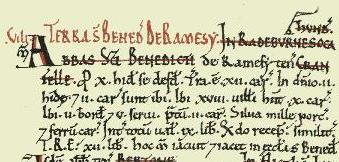 TERRA S̃ BENED̃ DE RAMESY. In RADEBURNESOCA hund̃.
ABBAS Sc̃i BENEDICTI de Ramesy ten̄ CRAN
felle. p̄ x. hid̃ se defd̃. Tra ē. xii. car̃. In dñio. ii.
hidę 7 ii. car̃ sunt ibi. Ibi. xviii. uilli hñt. x. car̃.
Ibi. ii. bord̃ 7 v. serui. ptũ. ii. car̃. Silua mille porc̃.
7 ferrũ car̃. Int totũ ual̃. ix. lib̃. X do recep̃. similit̃.
T.R.E. xii. lib̃. hoc m̃ iacuit 7 iacet in eccła S Bened̃